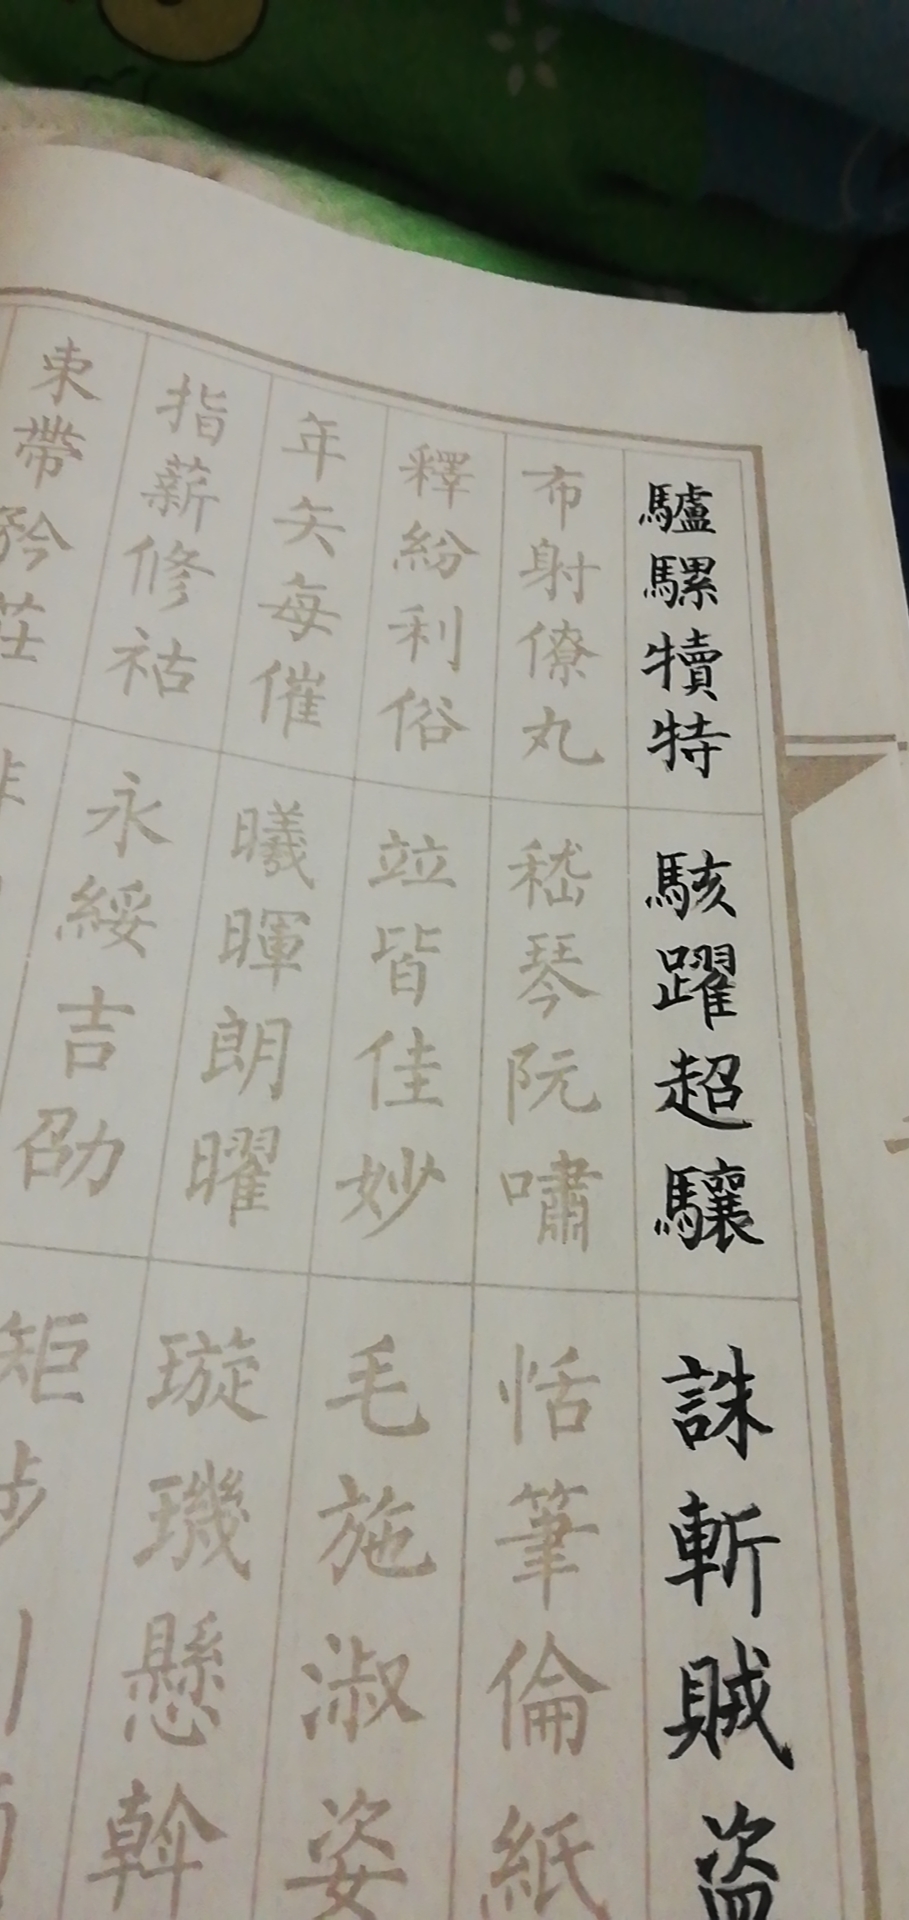 驢騾犢特
駭躍超驤
誅斬賊盜
布射僚丸
嵇琴阮嘯
恬筆倫紙
釋紛利俗
竝皆佳妙
毛施淑姿
年矢每催
曦暉朗曜
璇璣懸斡
指薪修祜
永綏吉劭
矩步引
束帶矜莊